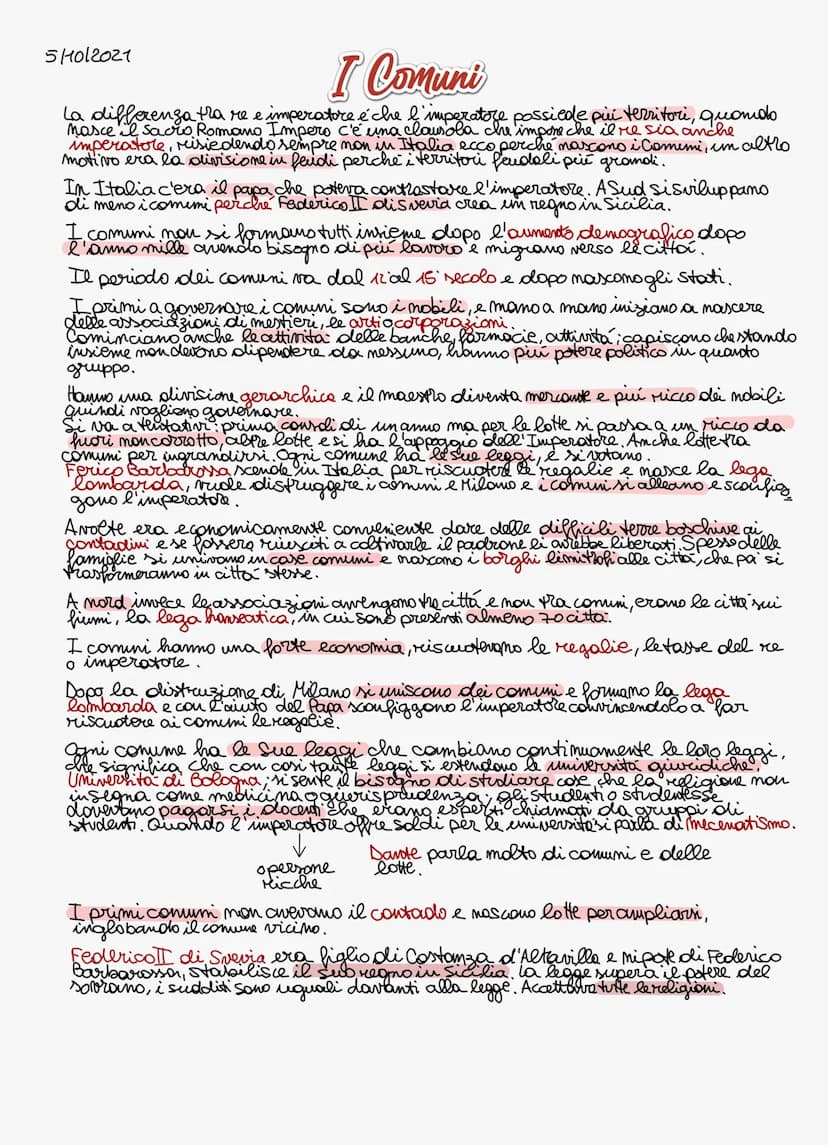 5/10/2021
I Comuni
La differenza tra re e imperatore é che l'imperatore possiede più territori, quando
nasce il Sacro Romano Impero c'é una clausola che impone che il re sia anche
imperatore, risiedendo sempre non in Italia ecco perché nascono i Comuni, un altro
motivo era la divisione in feudi perché i territori feudali più grandi.
In Italia c'era il papa che poteva contrastare l'imperatore. A Sud si sviluppano
di meno i comuni perché Federico II di Svevia crea un regno in Sicilia.
I comuni non si formano tutti insieme dopo l'aumento demografico dopo
l'anno mille avendo bisogno di più lavoro e migrano verso le città.
Il periodo dei comuni va dal 12 al 15° secolo e dopo nascono gli stati.
I primi a governare i comuni sono i nobili, e mano a mano iniziano a nascere
delle associazioni di mestieri, le arti o corporazioni.
Cominciano anche le attività delle banche, farmacie, attività; capiscono che stando
insieme non devono dipendere da nessuno, hanno più potere politico in quanto
gruppo.
Hanno una divisione gerarchica e il maestro diventa mercante e più ricco dei nobili
quindi vogliono governare.
Si va a tentativi: prima consoli di un anno ma per le lotte si passa a un ricco da
fuori non corrotto, altre lotte e si ha l'appoggio dell'Imperatore. Anche lotte tra
comuni per ingrandirsi. Ogni comune ha le sue leggi, e si votano.
Ferico Barbarossa scende in Italia per riscuotere le regalie e nasce la lega
lombarda, vuole distruggere i comuni e Milano e i comuni si alleano e sconfig
gono l'imperatore.
A volte era economicamente conveniente dare delle difficili terre boschive ai
contadini e se fossero riusciti a coltivarle il padrone li avrebbe liberati. Spesso delle
famiglie si univano in case comuni e nascono i borghi limitrofi alle città, che poi si
trasformeranno in città stesse.
A nord invece le associazioni avvengono tra città e non tra comuni, erano le città sui
fiumi, la lega hanseatica, in cui sono presenti almeno 70 città.
I comuni hanno una forte economia, riscuotevano le regalie, le tasse del re
o imperatore.
Dopo la distruzione di Milano si uniscono dei comuni e formano la lega
lombarda e con l'aiuto del Papa sconfiggono l'imperatore convincendolo a far
riscuotere ai comuni le regalie.
Ogni comune ha le sue leggi che cambiano continuamente le loro leggi,
che significa che con così tante leggi si estendono le università giuridiche,
Università di Bologna; si sente il bisogno di studiare cose che la religione non
insegna come medicina o guerisprudenza; gli studenti o studentesse
dovevano pagarsi i docenti che erano esperti chiamati da gruppi di
studenti. Quando l'imperatore offre soldi per le università si parla di Mecenatismo.
↓
o persone
ricche
Dante parla molto di comuni e delle
lotte.
I primi comuni non avevano il contado e nascono lotte per ampliarsi,
inglobando il comune vicino.
Federico II di Svevia era figlio di Costanza d'Altavilla e nipote di Federico
Barbarossa, stabilisce il suo regno in Sicilia. La legge supera il potere del
sovrano, i sudditi sono uguali davanti alla legge. Accettava tutte le religioni.